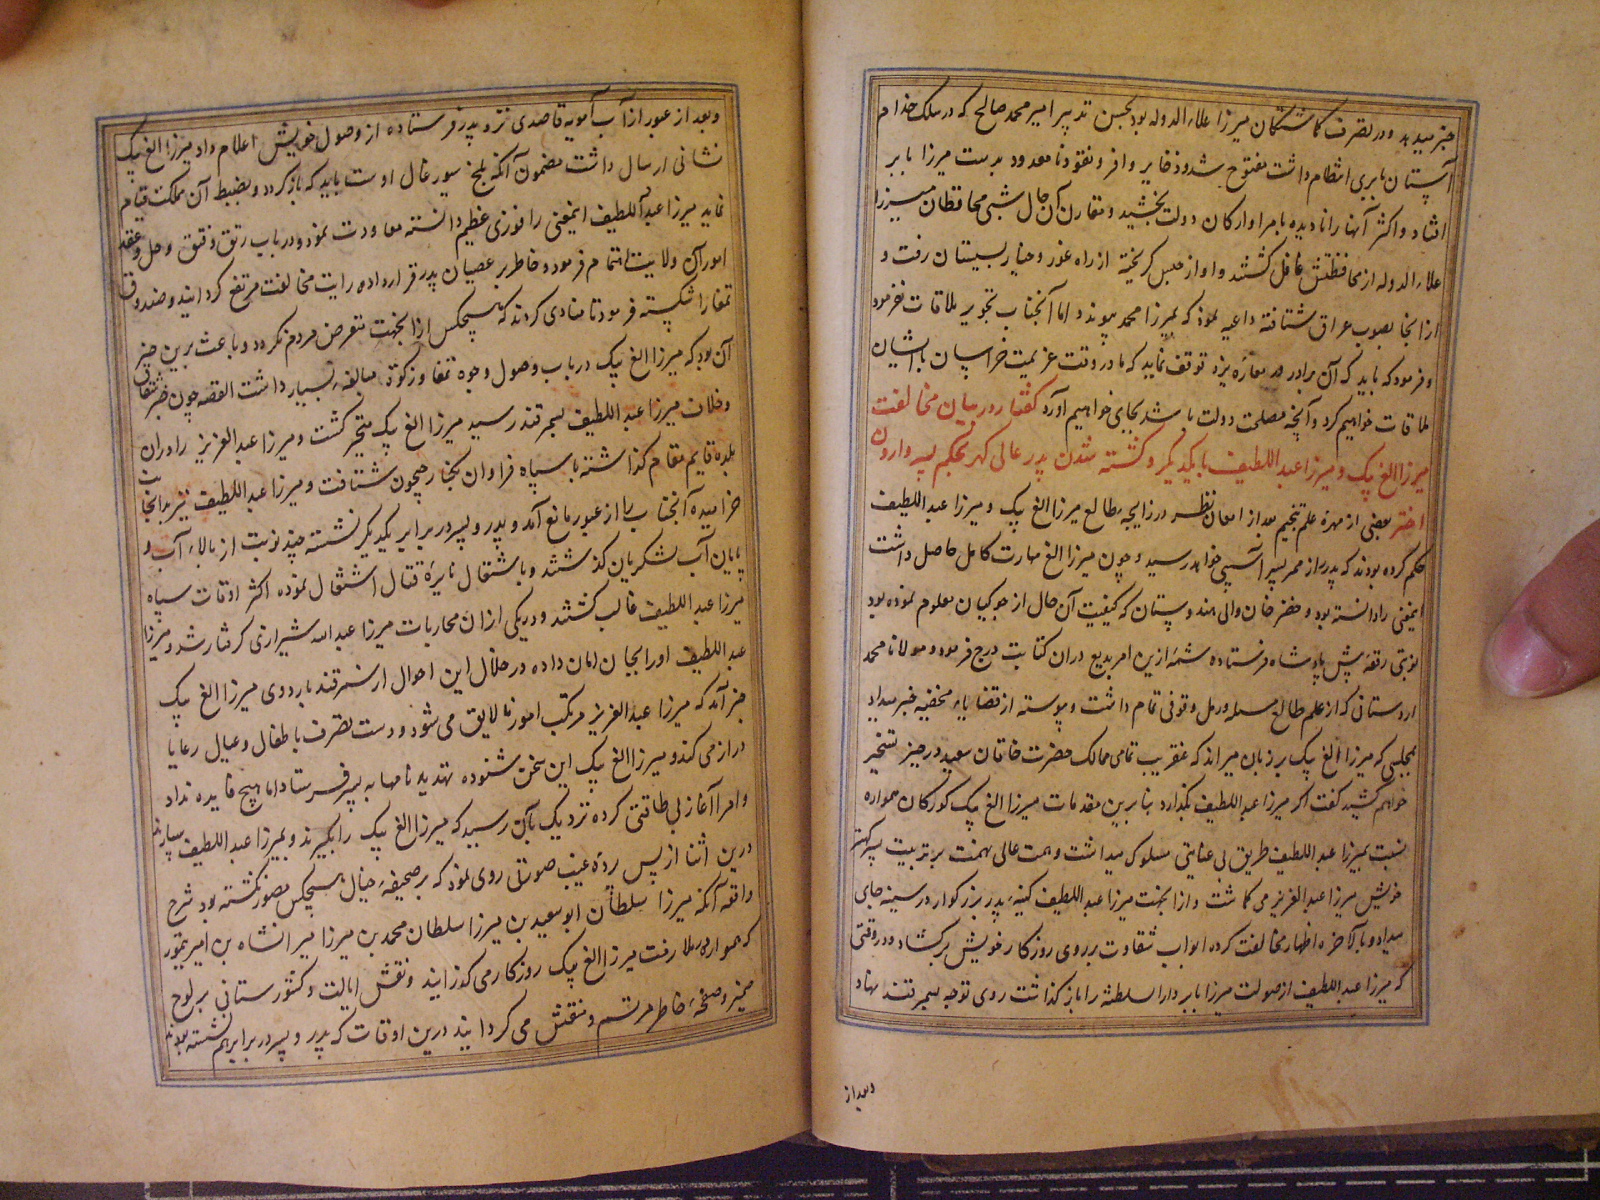 خبر میدید و در تصرف کماشتکان میرزا علاء الدوله بود بحسن تدبیر امیر محمد صالح که در سلک خدام
آستان بابری انتظام داشت مفتوح شد و ذخایر وافر و نقود نامعدود بدست میرزا بابر
افتاد و اکثر آنها را نادیده بامرا و ارکان دولت بخشید و مقارن آن حال شبی محافظان میرزا
علاء الدوله از محافظتش غافل کشتند و او از حبس کریخته از راه غور و بسیستان رفت و
از انجا بصوب عراق شتافته داعیه نمود که بمیرزا محمد پیوندد اما آنجناب تجویز ملاقات نفرمود
و فرمود که باید که آن برادر در یزد توقف نماید که ما در وقت عزیمت خراسان با ایشان
ملاقات خواهیم کرد و آنچه مصلحت دولت باشد بجای خواهیم آورد کفتار در بیان مخالفت
میرزا الغ بیک و میرزا عبد اللطیف با یکدیکر و کشته شدن پدر عالی کهر بحکم پسر وارون
اختر بعضی از مهرهٔ علم تنجیم بعد از امعان نظر در زایجه طالع میرزا الغ بیک و میرزا عبد اللطیف
حکم کرده بودند که پدر را از ممر پسر آسیبی خواهد رسید و چون میرزا الغ مهارت کامل حاصل داشت
اینمعنی را دانسته بود و خضر خان والی هندوستان که کیفیت آن حال از جوکیان معلوم نموده بود
نوبتی رقعه پیش پادشاه فرستاده شمهٔ ازین امر بدیع دران کتابت درج فرمود و مولانا محمد
اردستانی که از علم طالع مسئله و رمل وقوفی تمام داشت و پیوسته از قضایاء مخفیه خبر میداد
بمجلسی که میرزا الغ بیک بر زبان میراند که عنقریب تمامی ممالک حضرت خاقان سعید در حیز تسخیر
خواهم کشید کفت اکر میرزا عبد اللطیف بکذارد بنابرین مقدمات میرزا الغ بیک کورکان همواره
نسبت بمیرزا عبد اللطیف طریق بی عنایتی مسلوک میداشت و همت عالی نهمت بر تربیت پسر کهتر
خویش میرزا عبد العزیز می کماشت و ازانجهت میرزا عبد اللطیف کینهٔ پدر بزرکوار در سینه جای
میداد و بالاخره اظهار مخالفت کرده ابواب شقاوت بر روی روزکار خویش برکشاد و در وقتی
که میرزا عبد اللطیف از صولت میرزا بابر دار السلطنه را باز کذاشت روی توجه بسمرقند نهاد
وبعد از
وبعد از عبور از آب آمویه قاصدی نزد پدر فرستاده از وصول خویش اعلام داد میرزا الغ بیک
نشانی ارسال داشت مضمون آنکه بلخ سیورغال اوست باید که باز کردد و بضبط آن مملکت قیام
نماید میرزا عبد اللطیف اینمعنی را فوزی عظیم دانسته معاودت نمود و در باب رتق و فتق و حل و عقد
امور آن ولایت اهتمام فرمود و خاطر بر عصیان پدر قرار داده رایت مخالفت مرتفع کردانید و صندوق
تمغا را شکسته فرمود تا منادی کردند که هیچکس ازانجهت متعرض مردم نکردد و باعث برین چیز
آن بود که میرزا الغ بیک در باب وصول وجوه تمغا و زکوة مبالغهٔ بسیار داشت القصه چون خبر شقاق
و خلاف میرزا عبد اللطیف بسمرقند رسید میرزا الغ بیک متحیر کشت و میرزا عبد العزیز را دران
بلده قایم مقام کذاشته با سپاه فراوان بکنار جیحون شتافت و میرزا عبد اللطیف نیز بدانجانب
خرامیده آنجناب را از عبور مانع آمد و پدر و پسر در برابر یکدیکر نشسته چند نوبت از بالاء آب و
پایان آب لشکریان کذشتند و باشتعال نایرهٔ قتال اشتغال نموده اکثر اوقات سپاه
میرزا عبد اللطیف غالب کشتند و در یکی ازان محاربات میرزا عبد الله شیرازی کرفتار شد و میرزا
عبد اللطیف او را بجان امان داده در خلال این احوال از سمرقند باردوی میرزا الغ بیک
خبر آمد که میرزا عبد العزیز مرتکب امور نالایق می شود و دست تصرف باطفال و عیال رعایا
دراز می کند و میرزا الغ بیک این سخن شنوده تهدید نامها به پسر فرستاد اما هیچ فایده نداد
و امرا آغاز بی طاقتی کرده نزدیک بآن رسید که میرزا الغ بیک را بکیرند و بمیرزا عبد اللطیف سپارند
درین اثنا از پس پردهٔ غیب صورتی روی نمود که بر صحیفهٔ خیال هیچکس مصور نکشته بود شرح
واقعه آنکه میرزا سلطان ابو سعید بن میرزا سلطان محمد بن میرزا میرانشاه بن امیر تیمور
که همواره در ملازمت میرزا الغ بیک روزکار می کذرانید و نقش ایالت و کشورستانی بر لوح
ضمیر و صفحهٔ خاطر مرتسم و منتقش می کردانید درین اوقات که پدر و پسر در برابر هم نشسته بودند